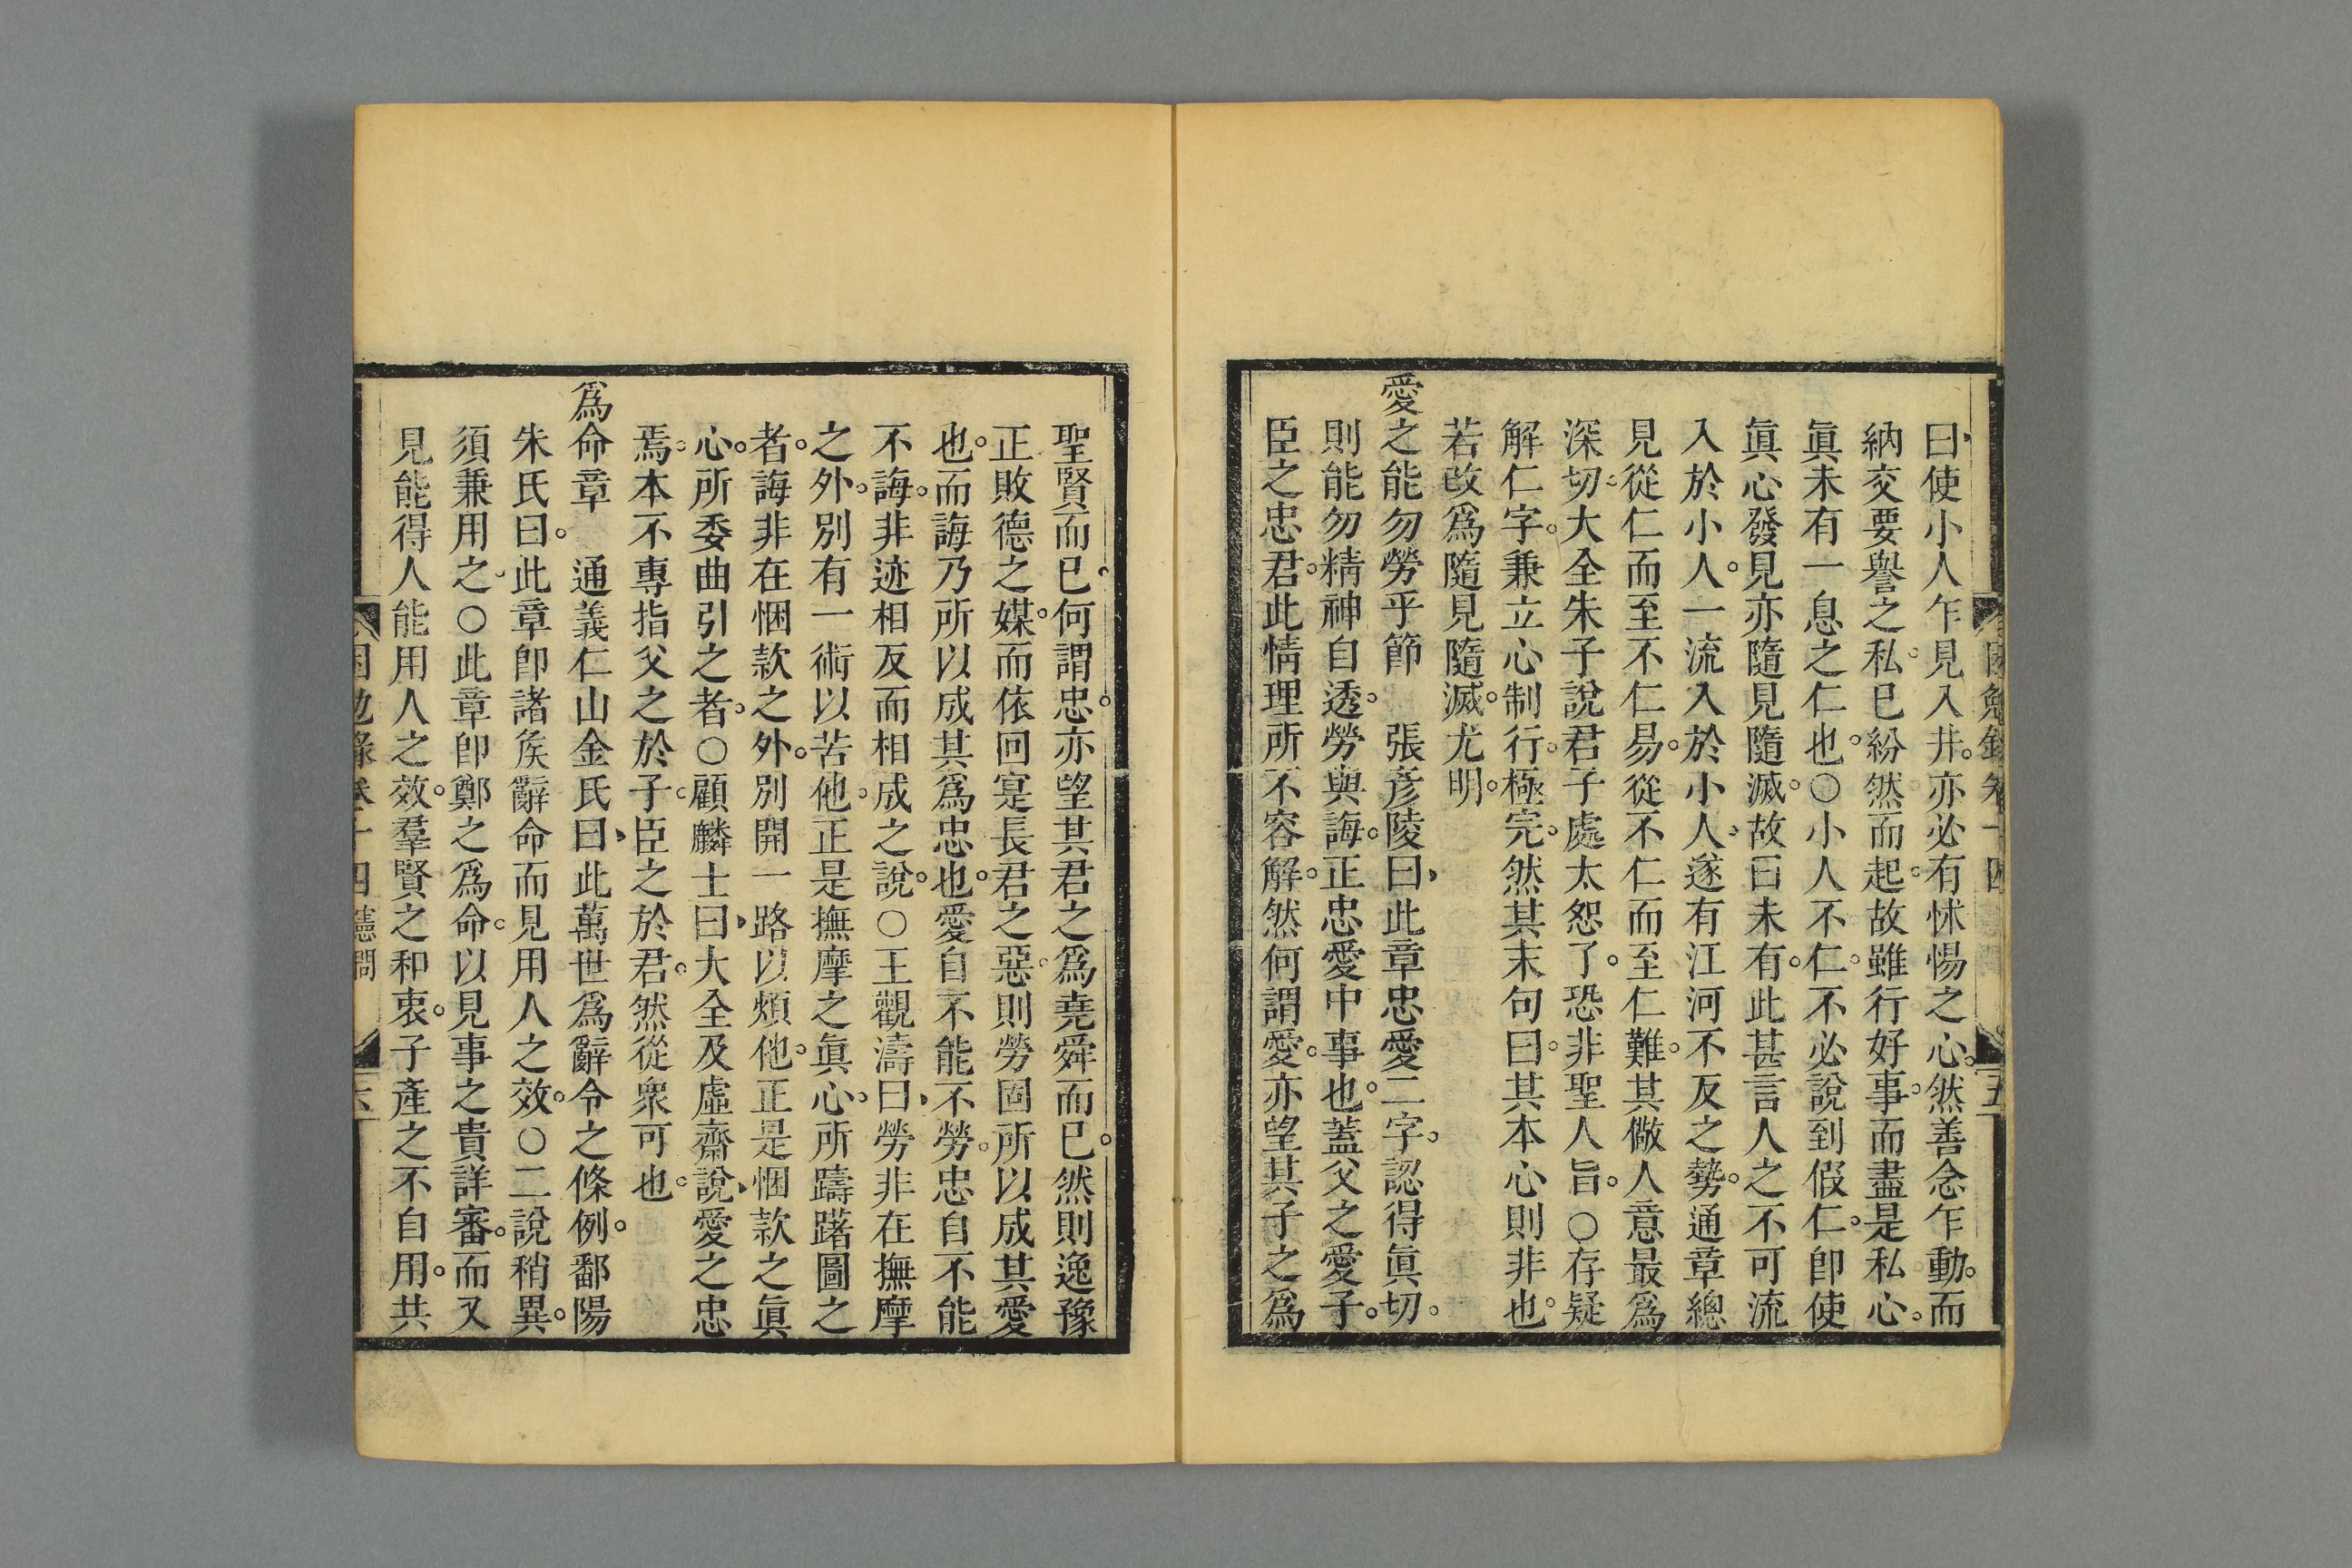 曰使小人乍見入井亦必有怵惕之心然善念乍動而
納交要譽之私已紛然而起故雖行好事而盡是私心
眞未有一息之仁也○小人不仁不必說到假仁卽使
眞心發見亦隨見隨滅故曰未有此甚言人之不可流
入於小人一流入於小人遂有江河不反之勢通章總
見從仁而至不仁易從不仁而至仁難其儆人意最爲
深切大全朱子說君子處太恕了恐非聖人旨○存疑
解仁字兼立心制行極完然其末句曰其本心則非也
若改爲隨見隨滅尤明
愛之能勿勞乎節 張彥陵曰此章忠愛二字認得眞切
則能勿精神自透勞與誨正忠愛中事也蓋父之愛子
臣之忠君此情理所不容解然何謂愛亦望其子之爲
聖賢而已何謂忠亦望其君之爲堯舜而已然則逸豫
正敗德之媒而依回寔長君之惡則勞固所以成其愛
也而誨乃所以成其爲忠也愛自不能不勞忠自不能
不誨非迹相反而相成之說○王觀濤曰勞非在撫摩
之外別有一術以苦他正是撫摩之眞心所躊躇圖之
者誨非在悃款之外別開一路以煩他正是悃款之眞
心所委曲引之者○顧麟士曰大全及虛齋說愛之忠
焉本不專指父之於子臣之於君然從衆可也
爲命章 通義仁山金氏曰此萬世爲辭令之條例鄱陽
朱氏曰此章卽諸矦辭命而見用人之效○二說稍異
須兼用之○此章卽鄭之爲命以見事之貴詳審而又
見能得人能用人之效羣賢之和衷子產之不自用共
困勉錄卷十四 憲問 六